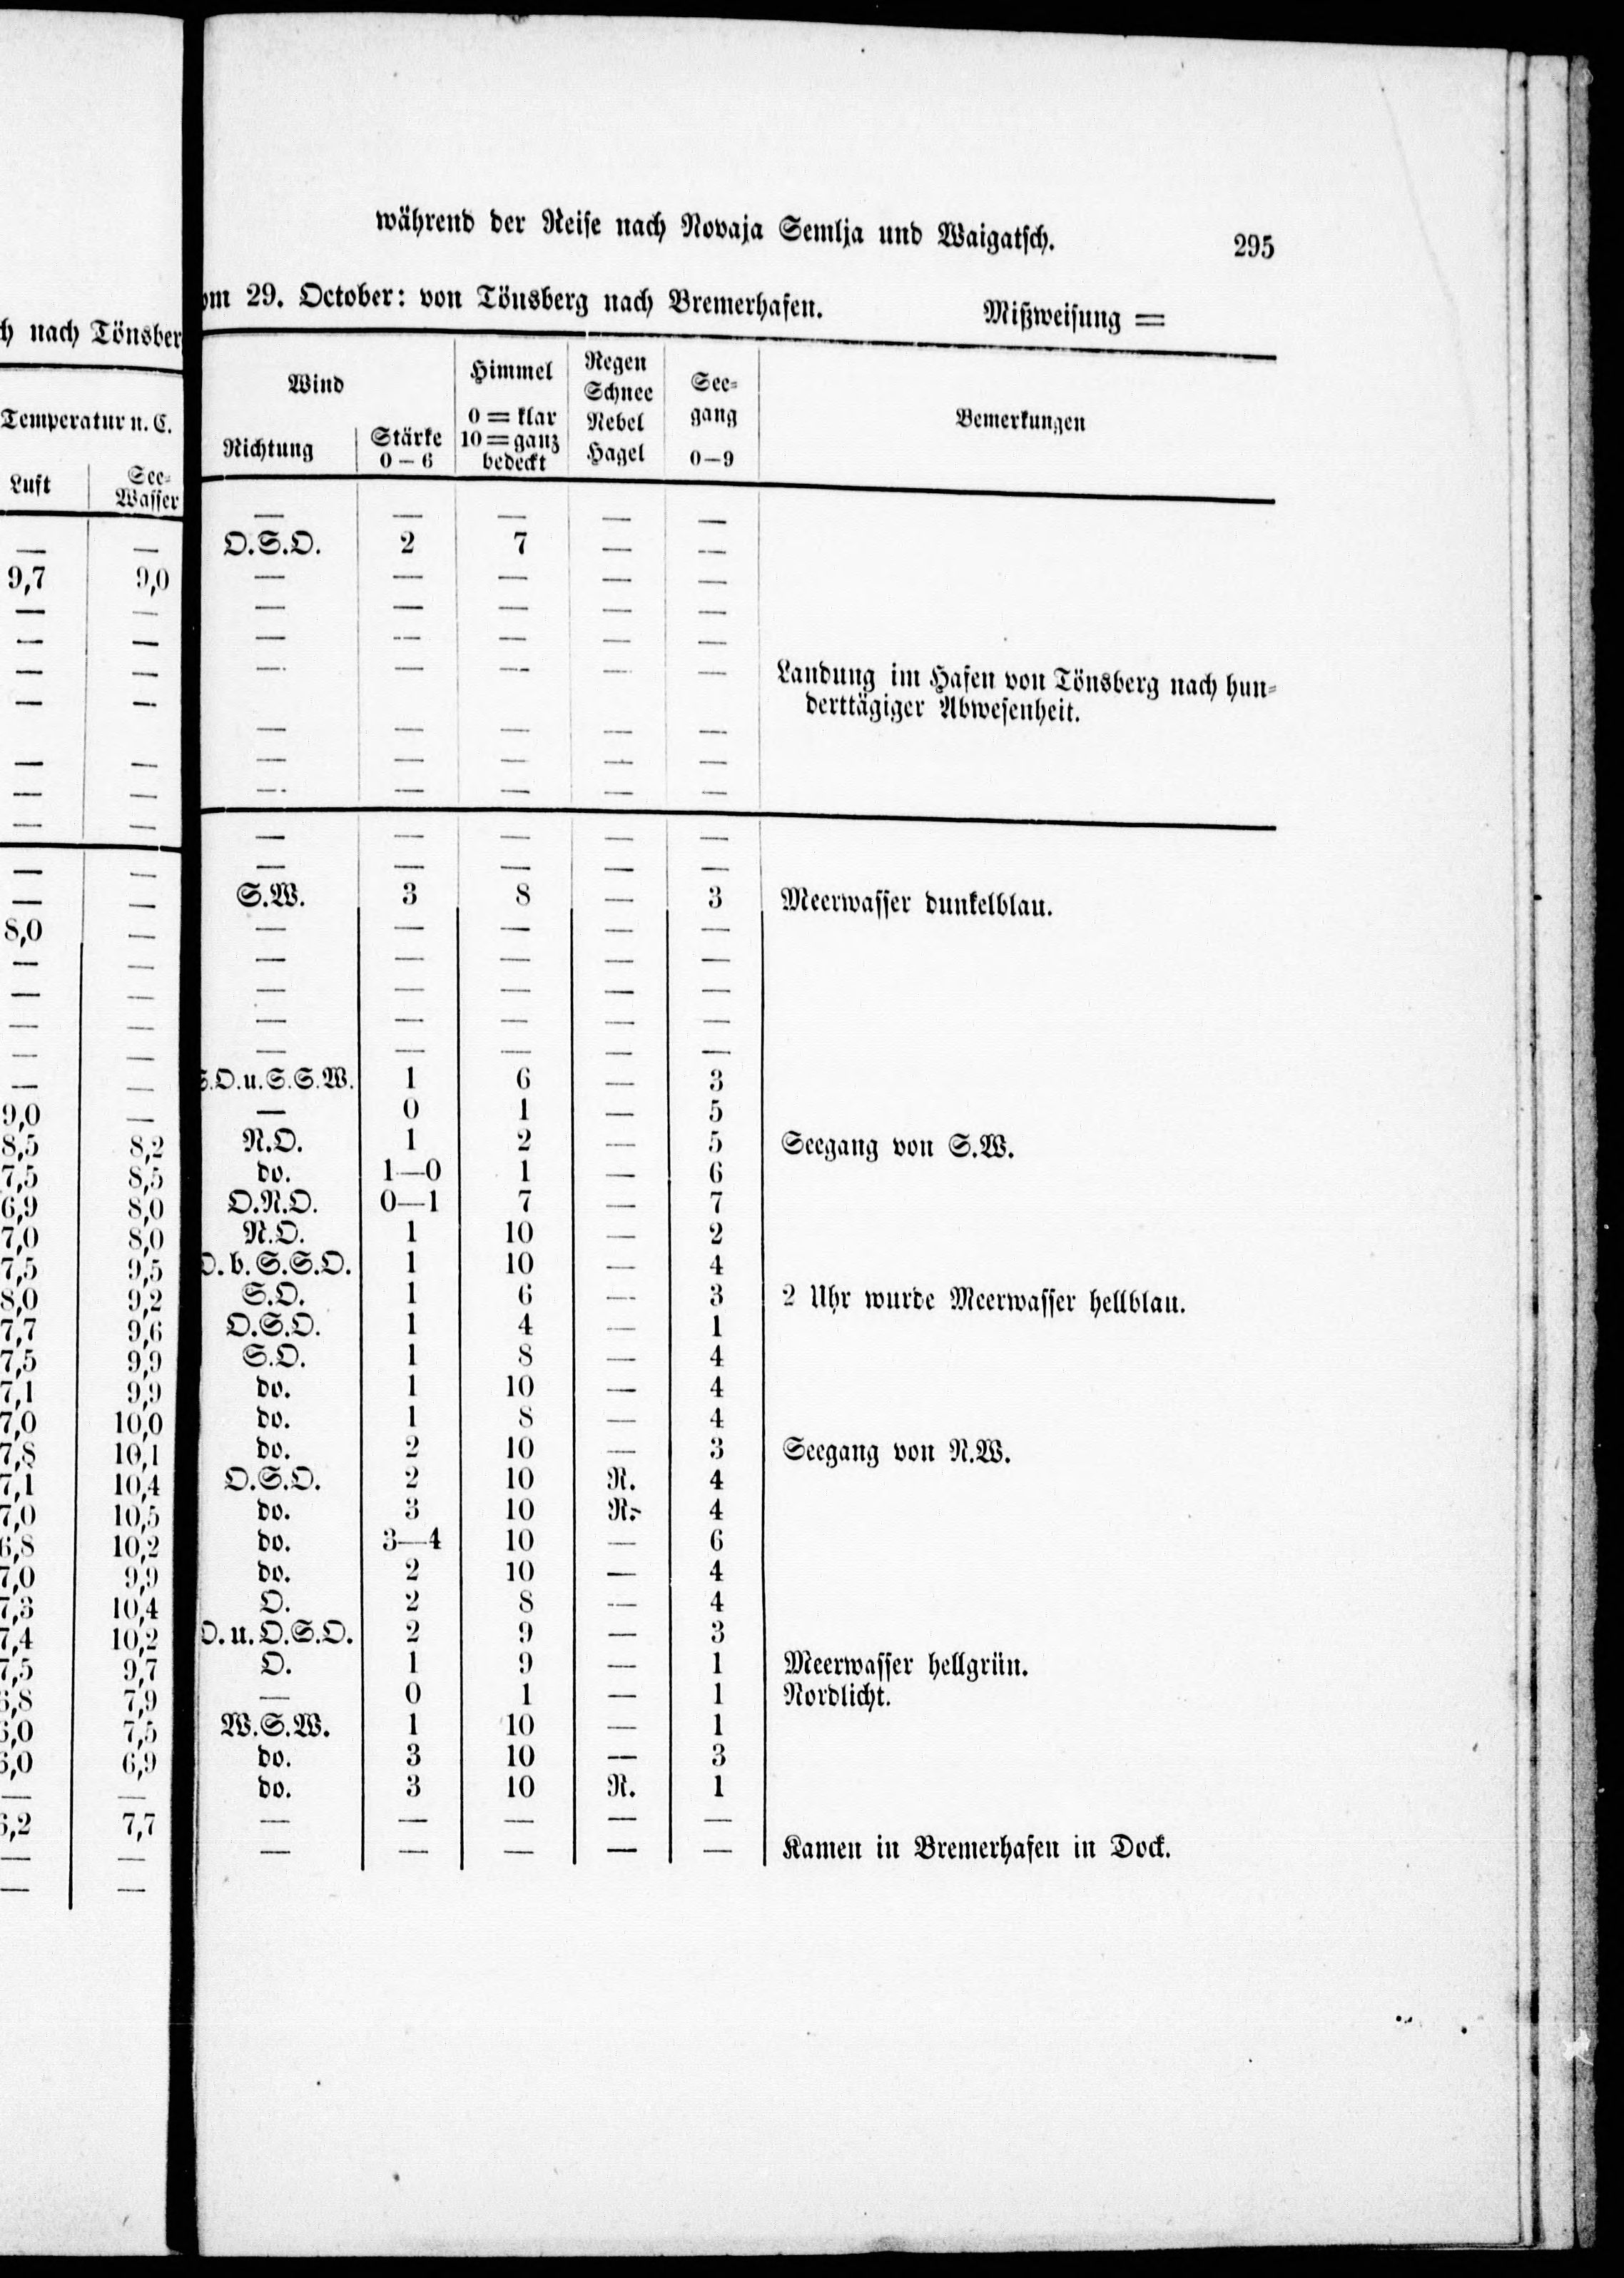 während der Reise nach Novaja Semlja und Waigatsch. 295
om 29. October: von Tönsberg nach Bremerhafen. Mißweisung =
Wind Himmel Regen Schnee Nebel Hagel See-gang Bemerkungen
Richtung Stärke 0—6 0 = klar 10 = ganz bedeckt 0—9
— — — — —
O.S.O. 2 7 — —
— — — — —
— — — — —
— — — — —
— — — — — Landung im Hafen von Tönsberg nach hun-
derttägiger Abwesenheit.
— — — — —
— — — — —
— — — — —
— — — — —
— — — — —
S.W. 3 8 — 3 Meerwasser dunkelblau.
— — — — —
— — — — —
— — — — —
— — — — —
— — — — —
S.O.u.S.S.W. 1 6 — 3
— 0 1 — 5
N.O. 1 2 — 5 Seegang von S.W.
do. 1—0 1 — 6
O.N.O. 0—1 7 — 7
N.O. 1 10 — 2
O.b.S.S.O. 1 10 — 4
S.O. 1 6 — 3 2 Uhr wurde Meerwasser hellblau.
O.S.O. 1 4 — 1
S.O. 1 8 — 4
do. 1 10 — 4
do. 1 8 — 4
do. 2 10 — 3 Seegang von N.W.
O.S.O. 2 10 R. 4
do. 3 10 R. 4
do. 3—4 10 — 6
do. 2 10 — 4
O. 2 8 — 4
O.u.O.S.O. 2 9 — 3
O. 1 9 — 1 Meerwasser hellgrün.
— 0 1 — 1 Nordlicht.
W.S.W. 1 10 — 1
do. 3 10 — 3
do. 3 10 R. 1
— — — — —
— — — — — Kamen in Bremerhafen in Dock.
ch nach Tönsber
Temperatur n. C.
Luft See-Wasser
— —
9,7 9,0
— —
— —
— —
— —
— —
— —
— —
— —
— —
8,0 —
— —
— —
— —
— —
— —
9,0 —
8,5 8,2
7,5 8,5
6,9 8,0
7,0 8,0
7,5 9,5
8,0 9,2
7,7 9,6
7,5 9,9
7,1 9,9
7,0 10,0
7,8 10,1
7,1 10,4
7,0 10,5
6,8 10,2
7,0 9,9
7,3 10,4
7,4 10,2
7,5 9,7
,8 7,9
,0 7,5
,0 6,9
— —
,2 7,7
— —
— —